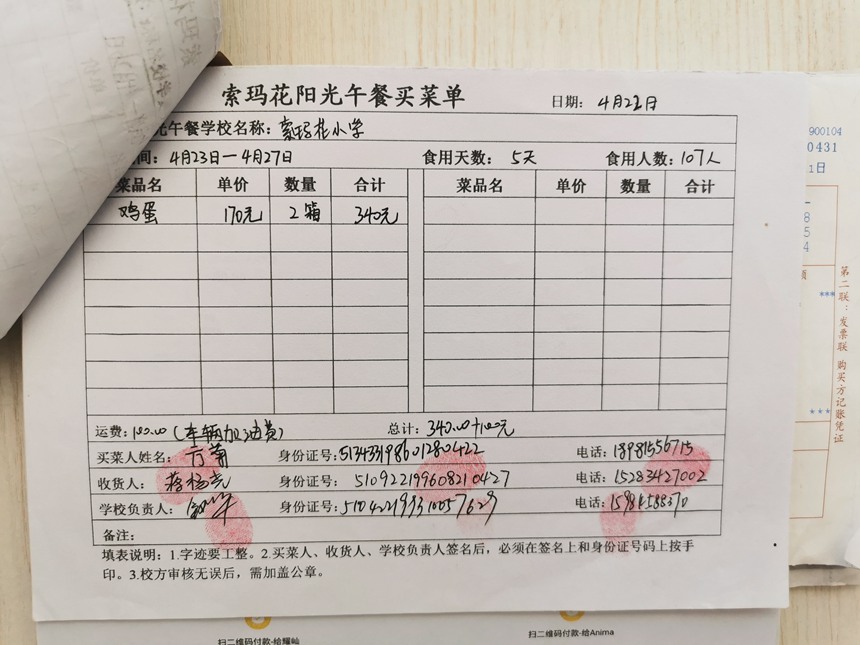 索玛花阳光午餐买菜单
日期: 4月22日
光午餐学校名称: 索玛花小学
间: 4月23日—4月27日 食用天数: 5天 食用人数: 107人
菜品名 单价 数量 合计 菜品名 单价 数量 合计
鸡蛋 170元 2箱 340元
运费: 100.00 (车辆加油费) 总计: 340.00+100元
买菜人姓名: 身份证号: 513433198601280422 电话: 18981556715
收货人: 蒋杨志 身份证号: 510922199608210427 电话: 15283427002
学校负责人: 身份证号: 电话:
备注:
填表说明: 1.字迹要工整。2.买菜人、收货人、学校负责人签名后，必须在签名上和身份证号码上按手
印。3.校方审核无误后，需加盖公章。
900104
0431
1日
第二联：发票联 购买方记账凭证
***
***
扫二维码付款-给耀屾
扫二维码付款-给Anima